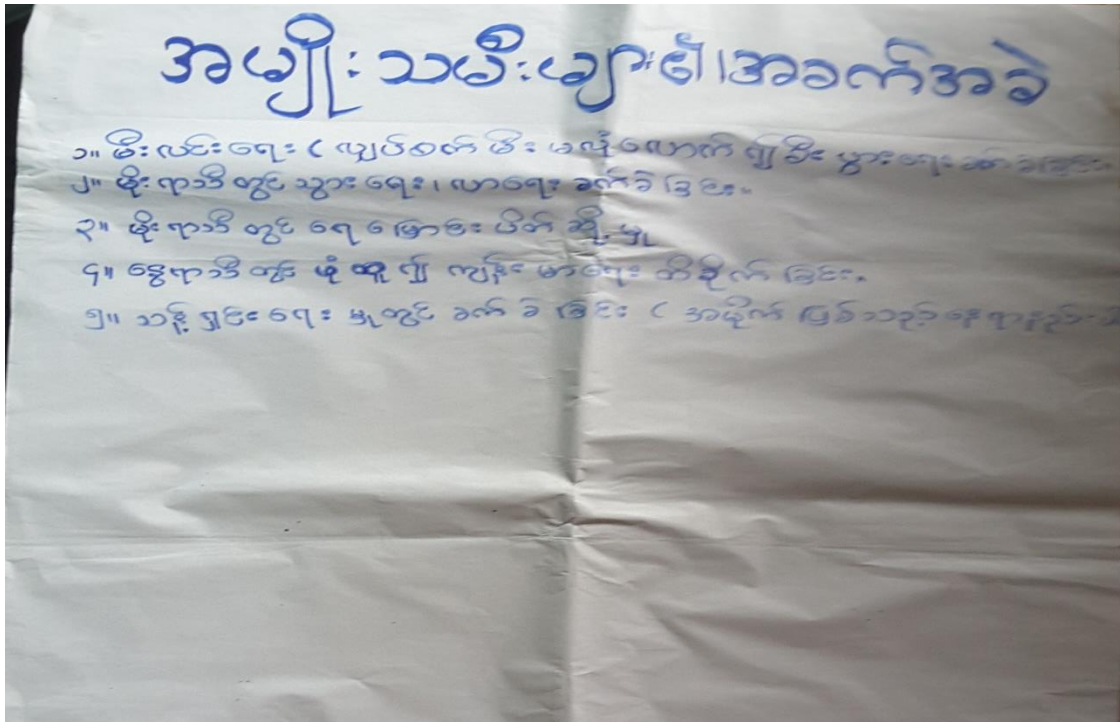 အမျိုးသမီးများ၏၊အခက်အခဲ
၁။ မီးလင်းရေး ( လျှပ်စက်မီး မလုံလောက်၍ မီး
၂။ မိုးရာသီတွင် သွားရေး၊ လာရေး ခက်ခဲခြင်း။
၃။ မိုးရာသီတွင် ရေမြောင်းပိတ်ဆို့မှု
၄။ နွေရာသီတွင် ဖုံထူ၍ ကျန်းမာရေး ထိခိုက်ခြင်း။
၅။ သန့်ရှင်းရေးမှုတွင် ခက်ခဲခြင်း ( အမှိုက်